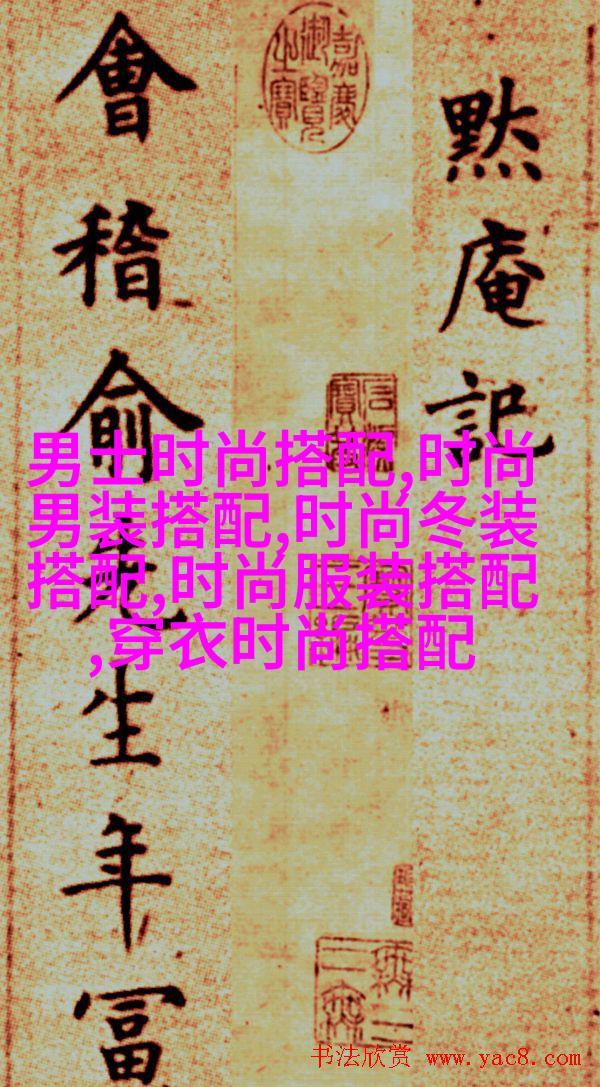 默庵記
嘉慶
御覽
之寶
會稽俞先生年冨
男士时尚搭配,时尚
男装搭配,时尚冬装
搭配,时尚服装搭配
,穿衣时尚搭配
书法欣赏 www.yac8.com